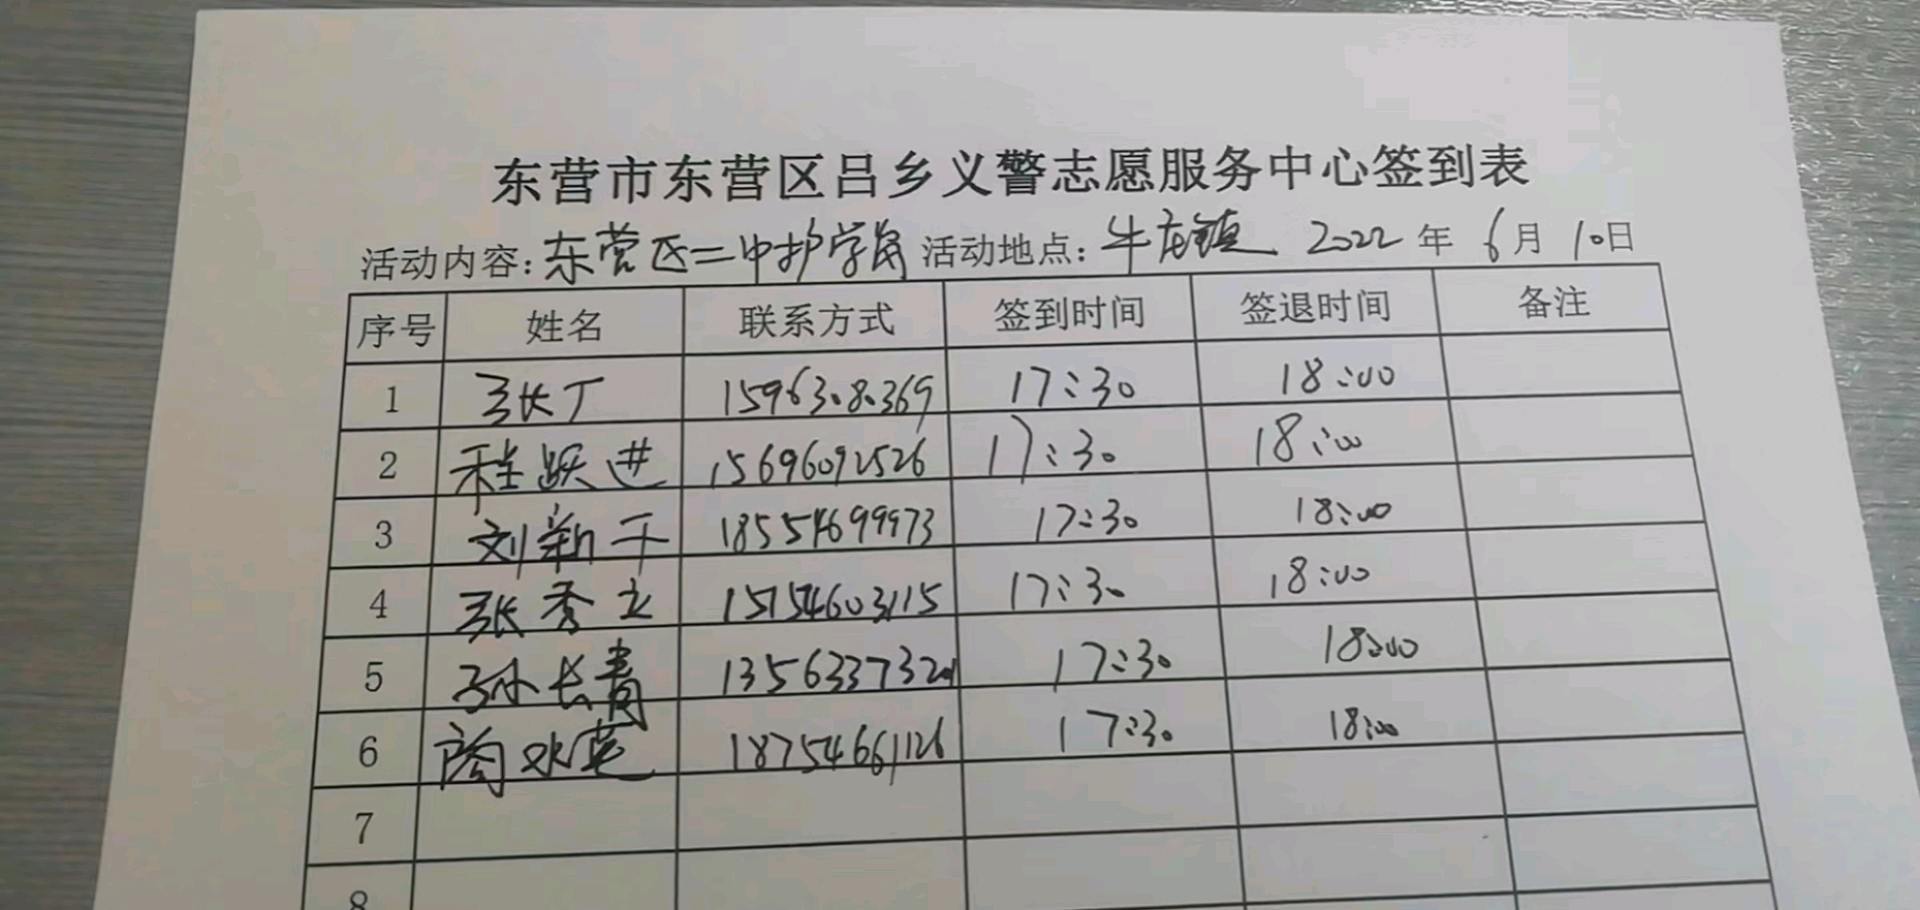 东营市东营区吕乡义警志愿服务中心签到表
活动内容：东营区二中护学岗 活动地点：牛庄镇 2022 年 6 月 10 日
序号 姓名 联系方式 签到时间 签退时间 备注
1 张丁 15963080369 17:30 18:00
2 程跃进 15696092526 17:30 18:00
3 刘新干 18554699973 17:30 18:00
4 张秀文 15154603115 17:30 18:00
5 孙长青 13563373201 17:30 18:00
6 18754661126 17:30 18:00
7
8